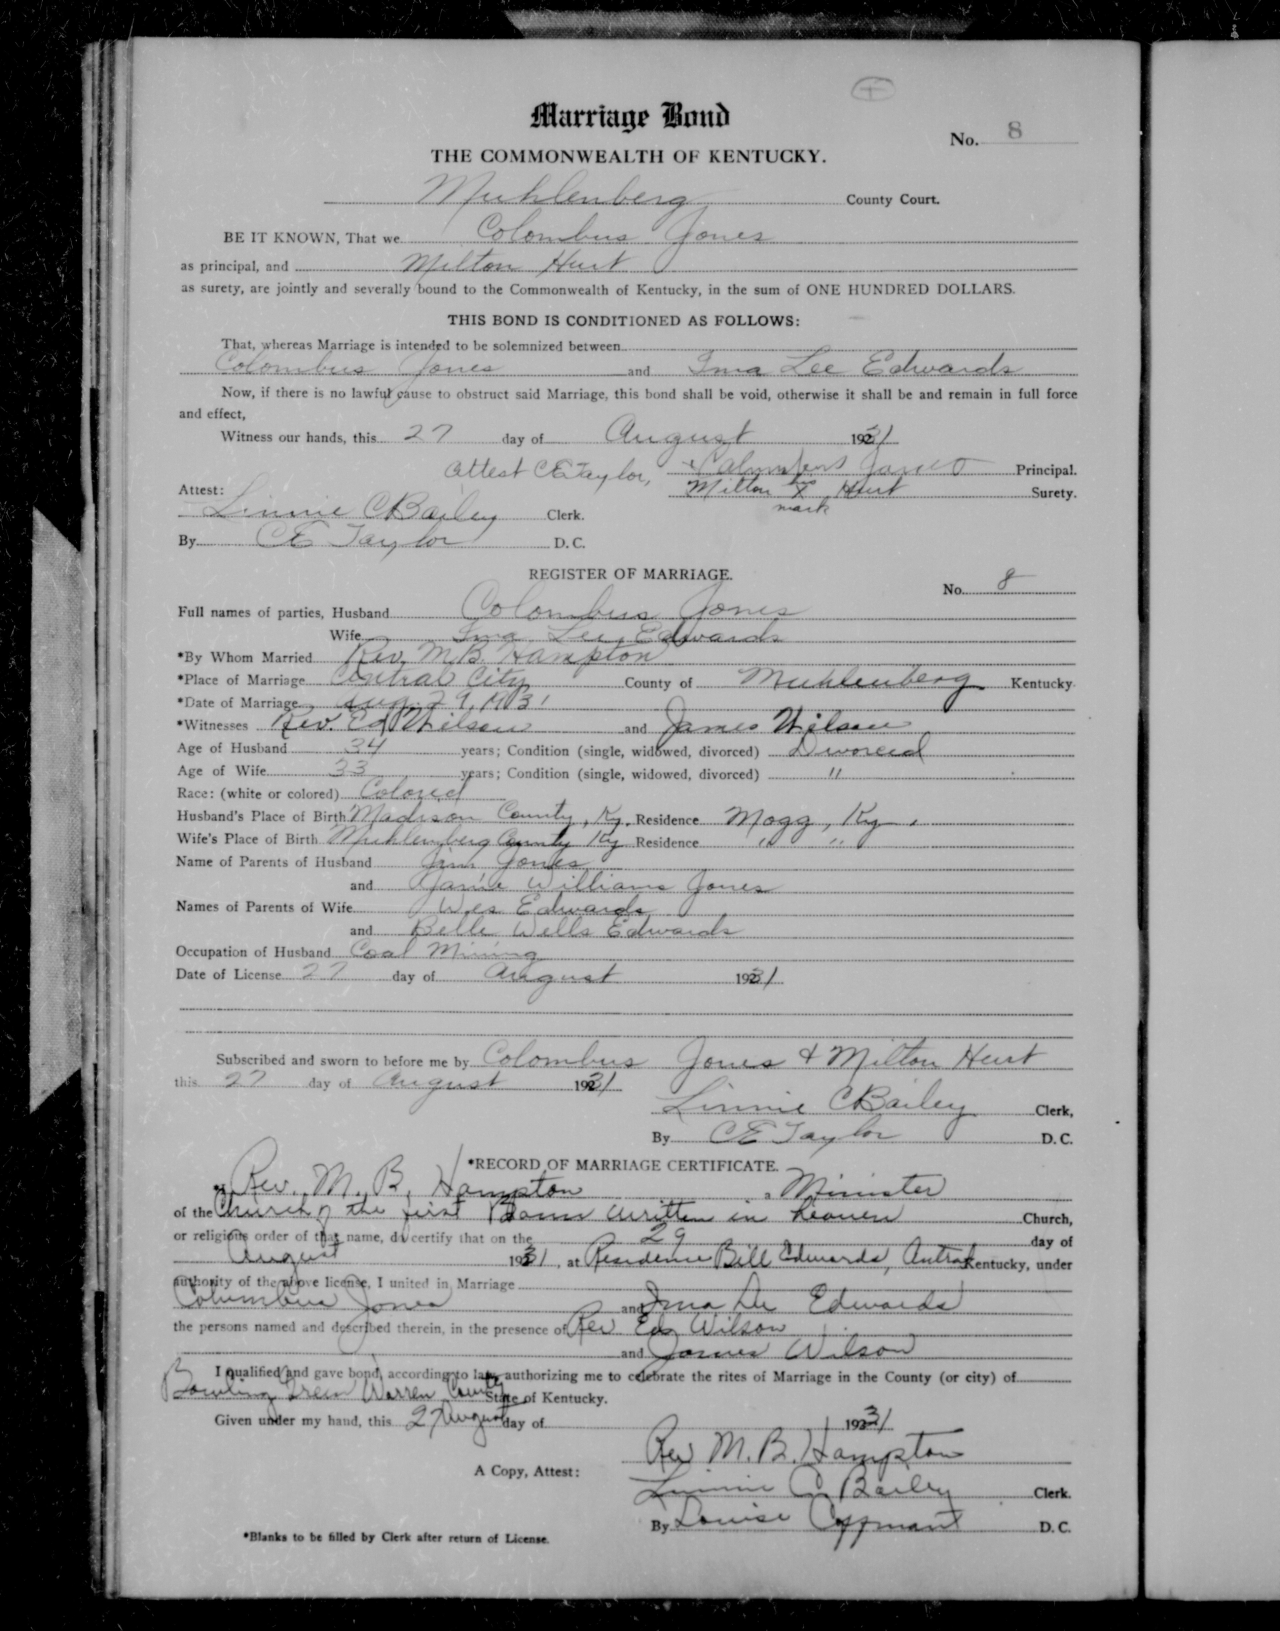 Marriage Bond
No. 8
THE COMMONWEALTH OF KENTUCKY.
Muhlenberg County Court.
BE IT KNOWN, That we Colombus Jones
as principal, and Milton Hurt
as surety, are jointly and severally bound to the Commonwealth of Kentucky, in the sum of ONE HUNDRED DOLLARS.
THIS BOND IS CONDITIONED AS FOLLOWS:
That, whereas Marriage is intended to be solemnized between
Colombus Jones and Ima Lee Edwards
Now, if there is no lawful cause to obstruct said Marriage, this bond shall be void, otherwise it shall be and remain in full force
and effect,
Witness our hands, this 27 day of August 1931
Attest CE Taylor, Jones Principal.
Attest: Milton X Hurt Surety.
mark
Linnie C Bailey Clerk.
By CE Taylor D. C.
REGISTER OF MARRIAGE.
No. 8
Full names of parties, Husband Colombus Jones
Wife Ima Lee Edwards
*By Whom Married Rev. M.B. Hampton
*Place of Marriage Central City County of Muhlenberg Kentucky
*Date of Marriage Aug. 29, 1931
*Witnesses Rev. Ed Wilson and James Wilson
Age of Husband 34 years; Condition (single, widowed, divorced) Divorced
Age of Wife 33 years; Condition (single, widowed, divorced) "
Race: (white or colored) Colored
Husband's Place of Birth Madison County, Ky. Residence Mogg, Ky.
Wife's Place of Birth Muhlenberg County Ky Residence " "
Name of Parents of Husband Jim Jones
and Williams Jones
Names of Parents of Wife Wes Edwards
and Belle Wells Edwards
Occupation of Husband Coal Mining
Date of License 27 day of August 1931
Subscribed and sworn to before me by Colombus Jones & Milton Hurt
this 27 day of August 1931
Linnie C Bailey Clerk,
By CE Taylor D. C.
*RECORD OF MARRIAGE CERTIFICATE.
Rev. M. B. Hampton, a Minister
of the Church of the first Born written in heaven Church,
or religious order of that name, do certify that on the 29 day of
August 1931, at Residence Bill Edwards, Kentucky, under
authority of the above license, I united in Marriage
Columbus Jones and Ima Lee Edwards
the persons named and described therein, in the presence of Rev Ed Wilson
and James Wilson
I qualified and gave bond, according to law, authorizing me to celebrate the rites of Marriage in the County (or city) of
Bowling Green Warren County State of Kentucky.
Given under my hand, this 27 August day of 1931
Rev M. B. Hampton
A Copy, Attest: Linnie C. Bailey Clerk.
By Louise D. C.
*Blanks to be filled by Clerk after return of License.